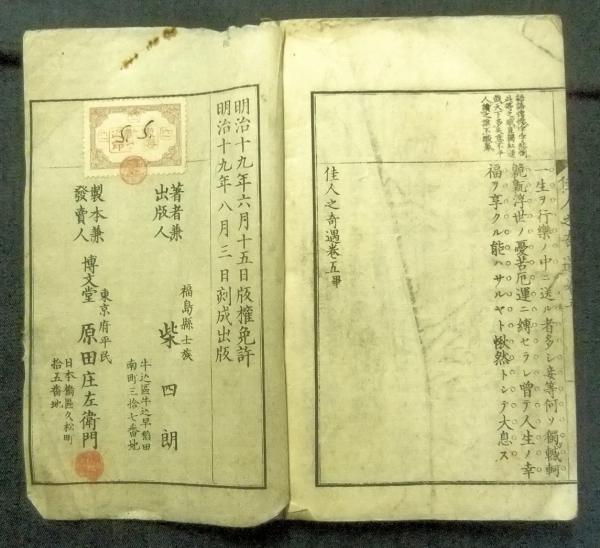 一生ヲ行樂ノ中ニ送ル者多シ妾等何ソ獨轗軻
範氣浮世ノ憂苦厄運ニ縛セラレ曾テ人生ノ幸
福ヲ享クル能ハサルヤト愀然トシテ大息ス
佳人之奇遇卷五畢
明治十九年六月十五日版權免許
明治十九年八月三日刻成出版
著者兼
出版人
福島縣士族
柴四朗
牛込區牛込早稻田
南町三拾七番地
製本兼
發賣人
東京府平民
博文堂 原田庄左衛門
日本橋區久松町
拾五番地